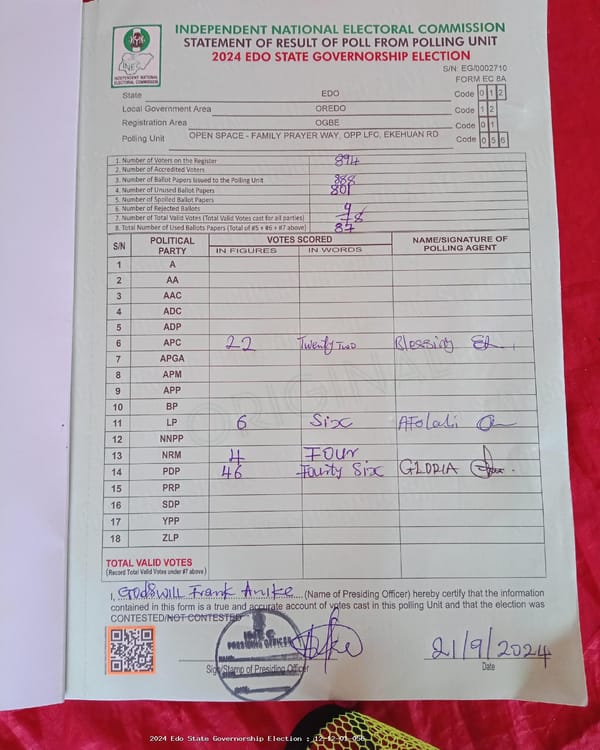 INDEPENDENT NATIONAL ELECTORAL COMMISSION
STATEMENT OF RESULT OF POLL FROM POLLING UNIT
2024 EDO STATE GOVERNORSHIP ELECTION
INEC
INDEPENDENT NATIONAL
ELECTORAL COMMISSION
S/N: EG/0002710
FORM EC 8A
State EDO Code 0 1 2
Local Government Area OREDO Code 1 2
Registration Area OGBE Code 0 1
Polling Unit OPEN SPACE - FAMILY PRAYER WAY, OPP LFC, EKEHUAN RD Code 0 5 6
1. Number of Voters on the Register 894
2. Number of Accredited Voters
3. Number of Ballot Papers Issued to the Polling Unit 888
4. Number of Unused Ballot Papers 801
5. Number of Spoiled Ballot Papers
6. Number of Rejected Ballots 9
7. Number of Total Valid Votes (Total Valid Votes cast for all parties) 78
8. Total Number of Used Ballots Papers (Total of #5 + #6 + #7 above) 87
S/N POLITICAL PARTY VOTES SCORED NAME/SIGNATURE OF POLLING AGENT
IN FIGURES IN WORDS
1 A
2 AA
3 AAC
4 ADC
5 ADP
6 APC 22 Twenty Two Blessing
7 APGA
8 APM
9 APP
10 BP
11 LP 6 Six Afolabi
12 NNPP
13 NRM 4 Four
14 PDP 46 Fourty Six GLORIA
15 PRP
16 SDP
17 YPP
18 ZLP
ORIGINAL
TOTAL VALID VOTES
(Record Total Valid Votes under #7 above)
I, Godswill Frank Anike (Name of Presiding Officer) hereby certify that the information
contained in this form is a true and accurate account of votes cast in this polling Unit and that the election was
CONTESTED/NOT CONTESTED
INEC
PRESIDING OFFICER
21/9/2024
Sign/Stamp of Presiding Officer Date
2024 Edo State Governorship Election : 12-12-01-056